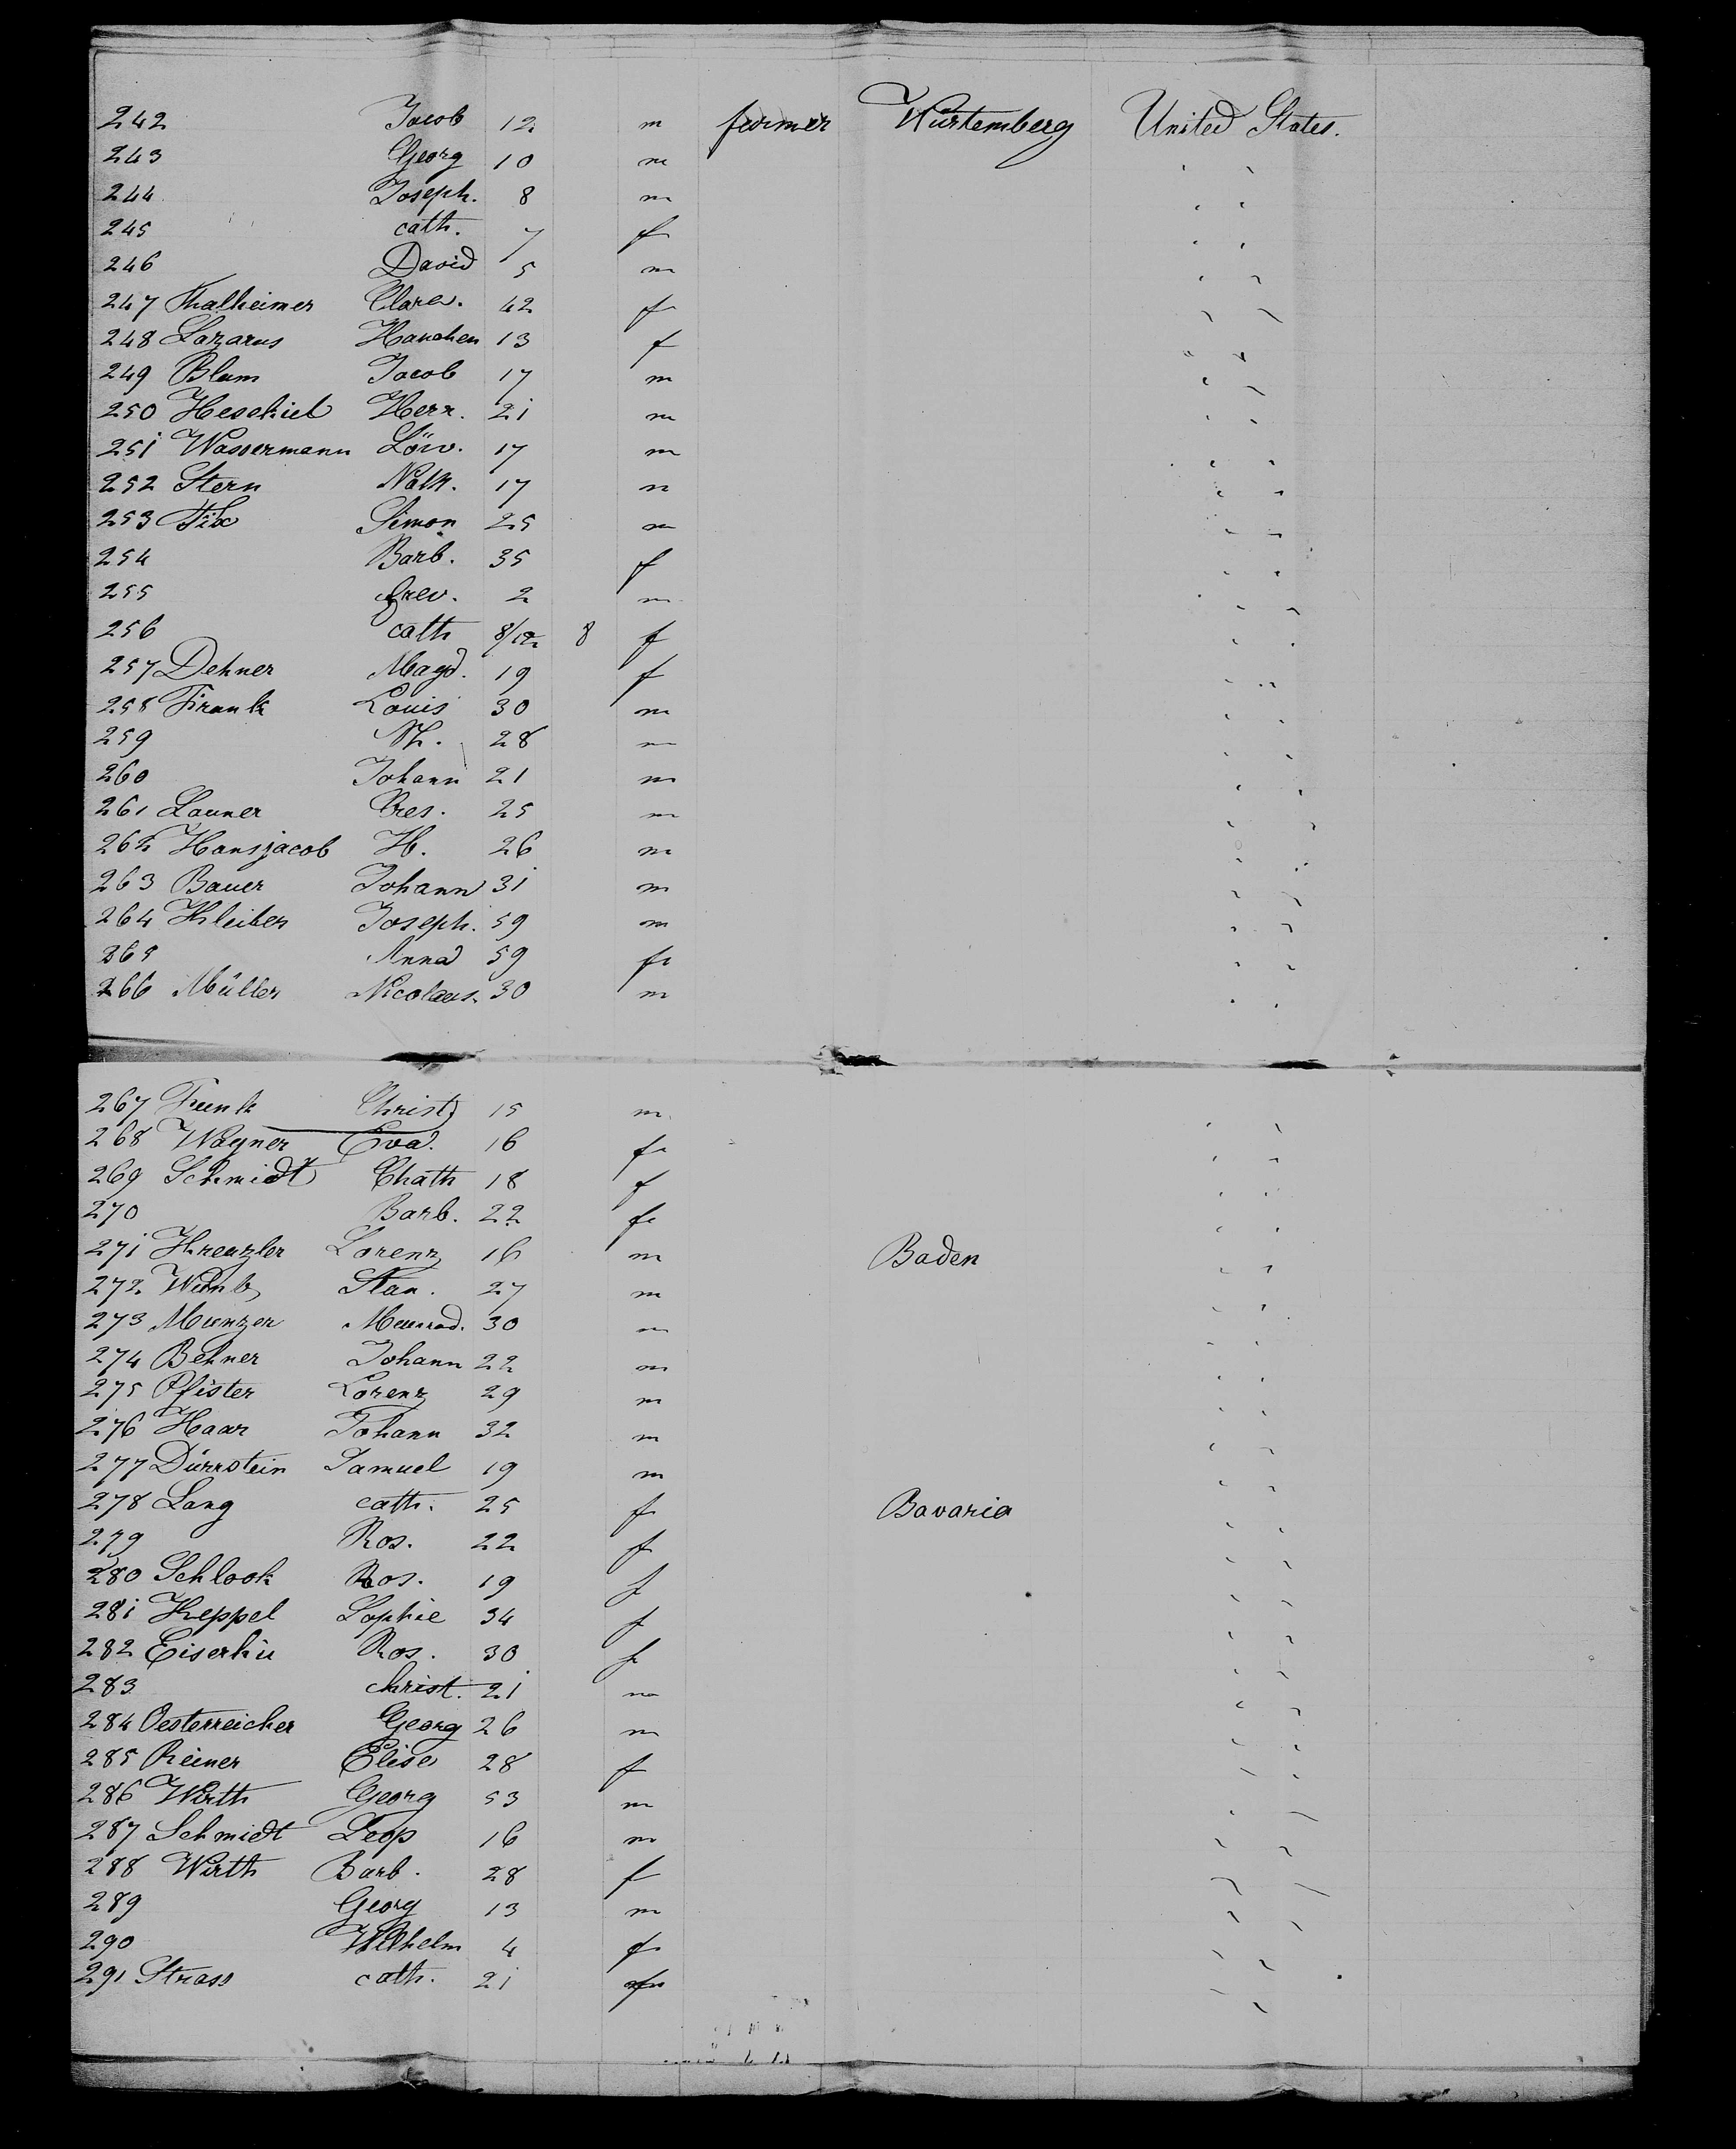 242 Jacob 12 m farmer Würtemberg United States.
243 Georg 10 m " "
244 Joseph. 8 m " "
245 cath. 7 f " "
246 David 5 m " "
247 Thalheimer Clara. 42 f " "
248 Lazarus Hanchen 13 f " "
249 Blum Jacob 17 m " "
250 Hesekiel Herr. 21 m " "
251 Wassermann Löw. 17 m " "
252 Stern Nath. 17 m " "
253 Fix Simon 25 m " "
254 Barb. 35 f " "
255 2 m " "
256 cath 8/12 8 f " "
257 Dehner Magd. 19 f " "
258 Frank Louis 30 m " "
259 28 m " "
260 Johann 21 m " "
261 Launer Cres. 25 m " "
262 Hansjacob H. 26 m " "
263 Bauer Johann 31 m " "
264 Kleiber Joseph. 59 m " "
265 Anna 59 f " "
266 Müller Nicolaus. 30 m " "
267 Funk Christ 15 m " "
268 Wagner Eva. 16 f " "
269 Schmidt Chath 18 f " "
270 Barb. 22 f " "
271 Kreuzler Lorenz 16 m Baden " "
272 Stan. 27 m " "
273 Munzer 30 m " "
274 Behner Johann 22 m " "
275 Pfister Lorenz 29 m " "
276 Haar Johann 32 m " "
277 Dürrstein Samuel 19 m " "
278 Lang cath. 25 f Bavaria " "
279 Ros. 22 f " "
280 Schlook Ros. 19 f " "
281 Keppel Sophie 34 f " "
282 Ros. 30 f " "
283 christ. 21 m " "
284 Oesterreicher Georg 26 m " "
285 Reiner Elise 28 f " "
286 Wirth Georg 53 m " "
287 Schmidt Leop 16 m " "
288 Wirth Barb. 28 f " "
289 Georg 13 m " "
290 Wilhelm 4 f " "
291 Strass cath. 21 f " "